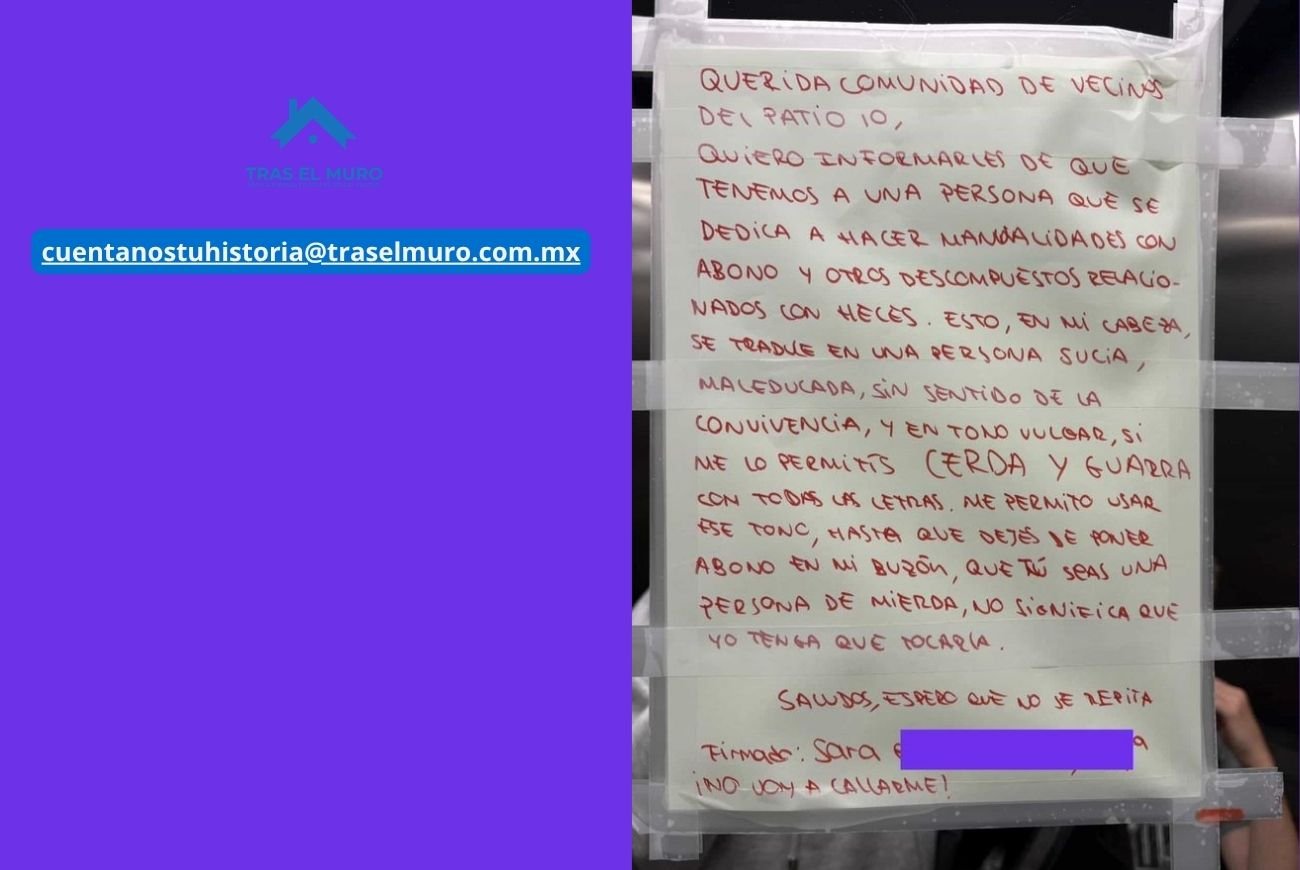 TRAS EL MURO
cuentanostuhistoria@traselmuro.com.mx
QUERIDA COMUNIDAD DE VECINOS
DEL PATIO 10,
QUIERO INFORMARLES DE QUE
TENEMOS A UNA PERSONA QUE SE
DEDICA A HACER MANUALIDADES CON
ABONO Y OTROS DESCOMPUESTOS RELACIO-
NADOS CON HECES. ESTO, EN MI CABEZA,
SE TRADUCE EN UNA PERSONA SUCIA,
MALEDUCADA, SIN SENTIDO DE LA
CONVIVENCIA, Y EN TONO VULGAR, SI
ME LO PERMITÍS CERDA Y GUARRA
CON TODAS LAS LETRAS. ME PERMITO USAR
ESE TONO, HASTA QUE DEJES DE PONER
ABONO EN MI BUZÓN, QUE TÚ SEAS UNA
PERSONA DE MIERDA, NO SIGNIFICA QUE
YO TENGA QUE TOCARLA.
SALUDOS, ESPERO QUE NO SE REPITA
Firmado: Sara
¡NO VOY A CALLARME!